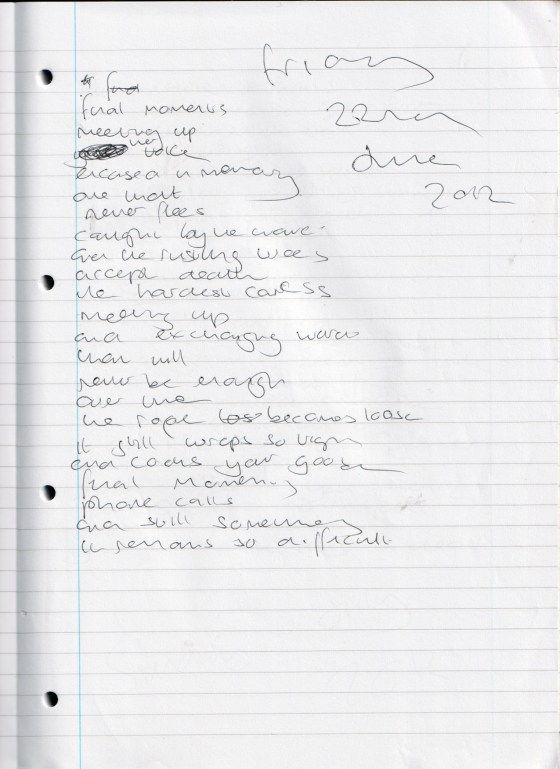 friday
22nd
June
2012
final moments
meeting up
her voice
encased in memory
one that
never flees
caught by the wave
and the rustling trees
accept death
the hardest caress
meeting up
and exchanging words
that will
never be enough
over time
the rope becomes loose
it still wraps so tight
and cooks your goose
final moments
phone calls
and still
it remains so difficult